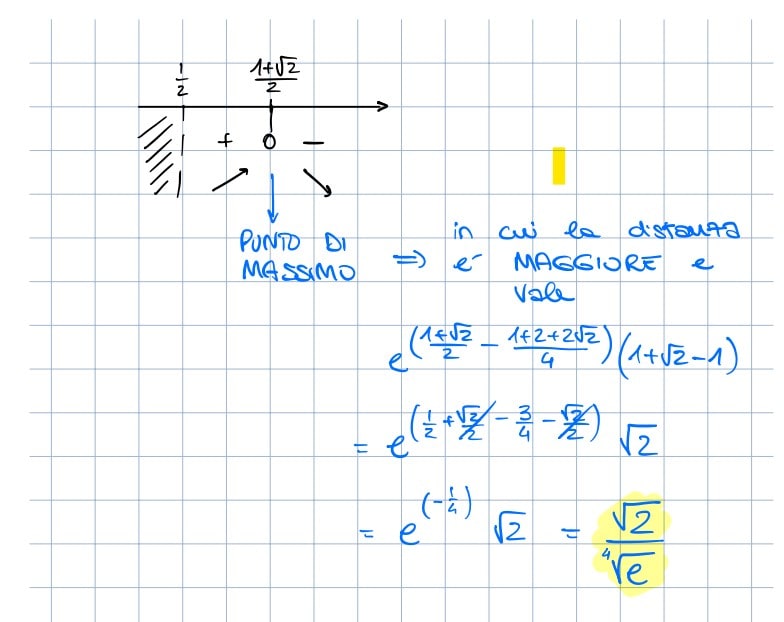 1/2 (1+√2)/2
+ 0 −
PUNTO DI
MASSIMO
⇒ in cui la distanza
e' MAGGIORE e
vale
e^((1+√2)/2 − (1+2+2√2)/4) (1+√2−1)
= e^(1/2 + √2/2 − 3/4 − √2/2) √2
= e^(−1/4) √2 = √2/⁴√e